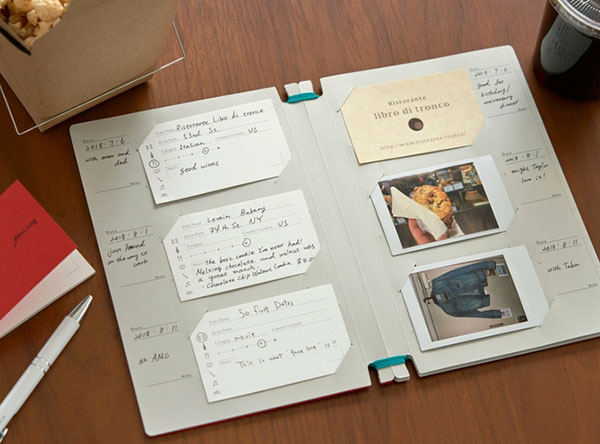 Date
2018 . 7 . 6
with mom and dad
Memo
Ristorante Libro di tronco
53rd St.
US
Category
Italian
good wines
Date
2018 . 8 . 1
on the way to work
Memo
Levain Bakery
74th St. NY
US
Category
The best cookie I've ever had!
Melting chocolate and walnut was
a great match.
- Chocolate Chip Walnut Cookie
Date
2018 . 8 . 11
at AMC
Memo
50 First Dates
Category
movie
This is what "true love" is!!
Ristorante
libro di tronco
http://www.ristrante.tronco/
Date
2018 . 7 . 6
Good for
birthday/
anniversary
dinner
Memo
Date
2018 . 8 . 1
might Taylor
love it!
Memo
Date
2018 . 8 . 11
with Taka
Memo